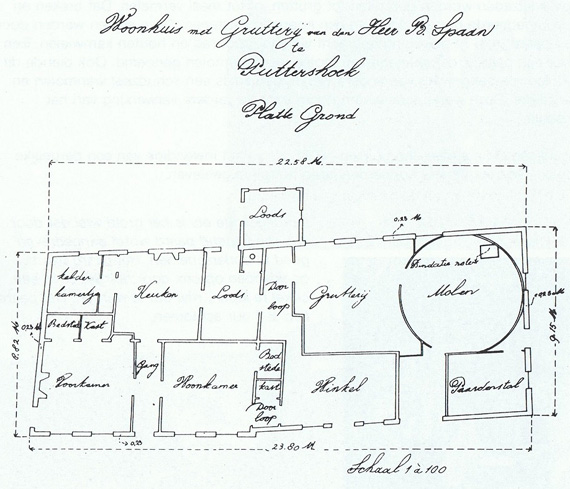 Woonhuis met Grutterij van den Heer B. Spaan
te
Puttershoek
Platte Grond
22.58 M
Loods
0,23 M
kelder
kamertje
Keuken
Loods
Door
loop
Grutterij
Molen
Bedstee
Kast
0,23 M
8.82 M
9.15 M
Voorkamer
Gang
Woonkamer
Bed
stede
kast
Door
loop
Winkel
Paardenstal
0,23
23.80 M
Schaal 1 à 100